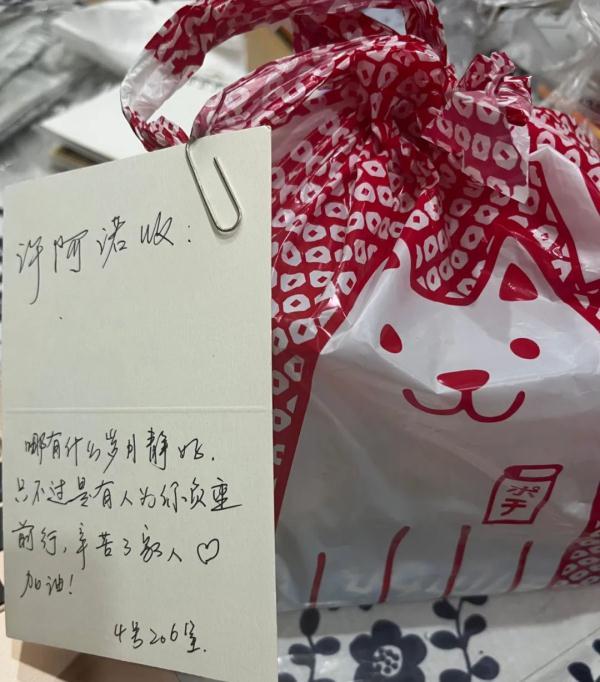 许阿诺收：
哪有什么岁月静好，
只不过是有人为你负重
前行，辛苦了家人♡
加油！
4号206室.
ポチ